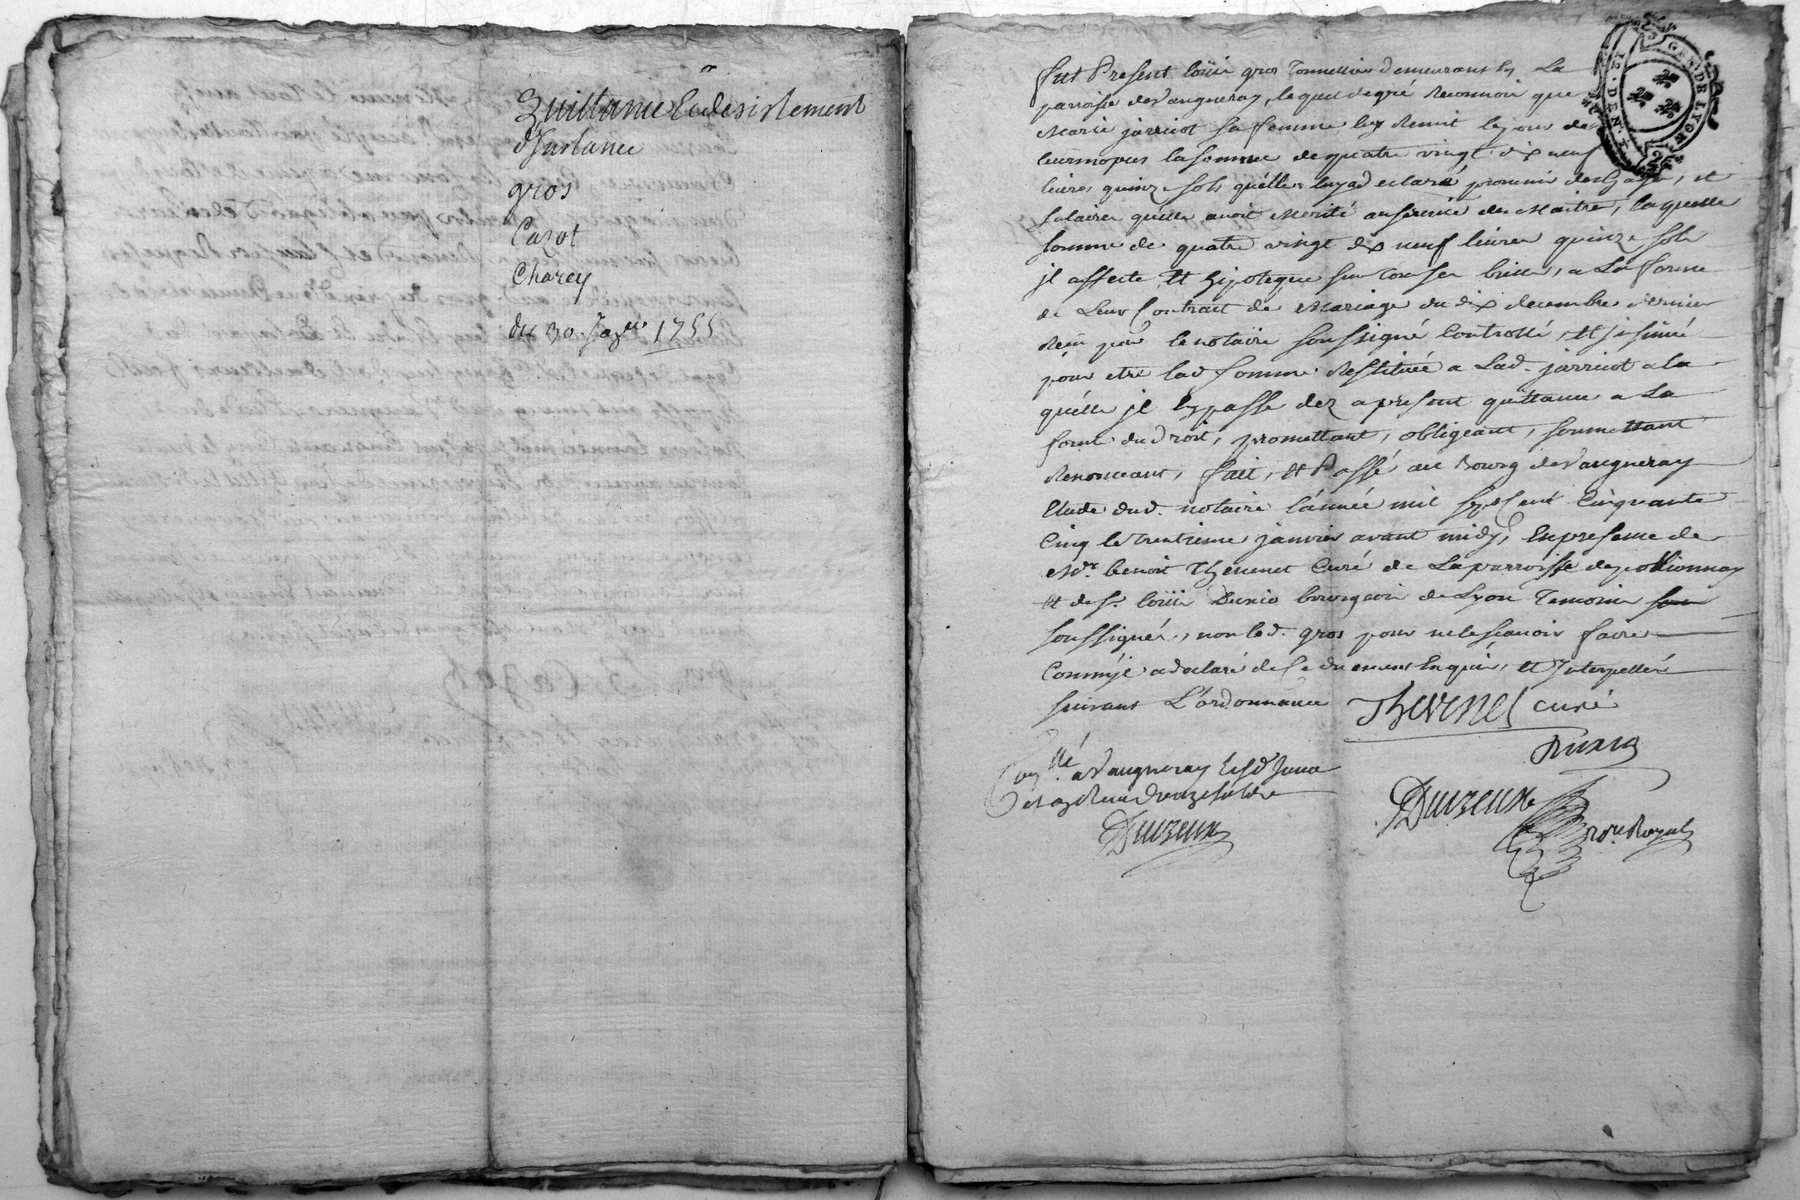 Quittance Et desistement
d'Instance
gros
Cazot
Charey
du 30 Jan.er 1755
GEN. DE LYON
12. DEN.
fut Present loüis gros Tonnellier demeurant en La
parroisse de Vaugneray, lequel de gré Reconnoit que
Marie jarricot sa femme luy Remit le jour de
leurs nopces la somme de quatre vingt dix neuf
livres quinze sols qu'elle luy a declaré provenir des Gages, et
salaires qu'elle avoit Merité au service des Maitres, laquelle
somme de quatre vingt dix neuf livres quinze sols
jl affecte Et hipoteque sur tous ses biens, a La forme
de Leur Contrat de Mariage du dix decembre dernier
Reçu par le notaire soussigné Controllé, Et jnsinué
pour etre lad. somme Restituée a Lad. jarricot a la
quelle jl en passe dez apresent quittance a La
forme du Droit, promettant, obligeant, soumettant
Renonceant, fait, Et Passé au Bourg de Vaugneray
Etude dud. notaire l'année mil sept cent Cinquante
Cinq le trentieme janvier avant midy, En presence de
Mr. benoit Thevenet Curé de La parroisse de pollionnay
Et de Sr. loüis bourgeois de Lyon Temoins
soussignés, non led. gros pour ne le scavoir faire
Comm'jl a declaré de ce duement Enquis, et Interpellé
suivant L'ordonnance Thevenet curé
Con.llé a Vaugneray led. Jour
et an Reçu douze sols